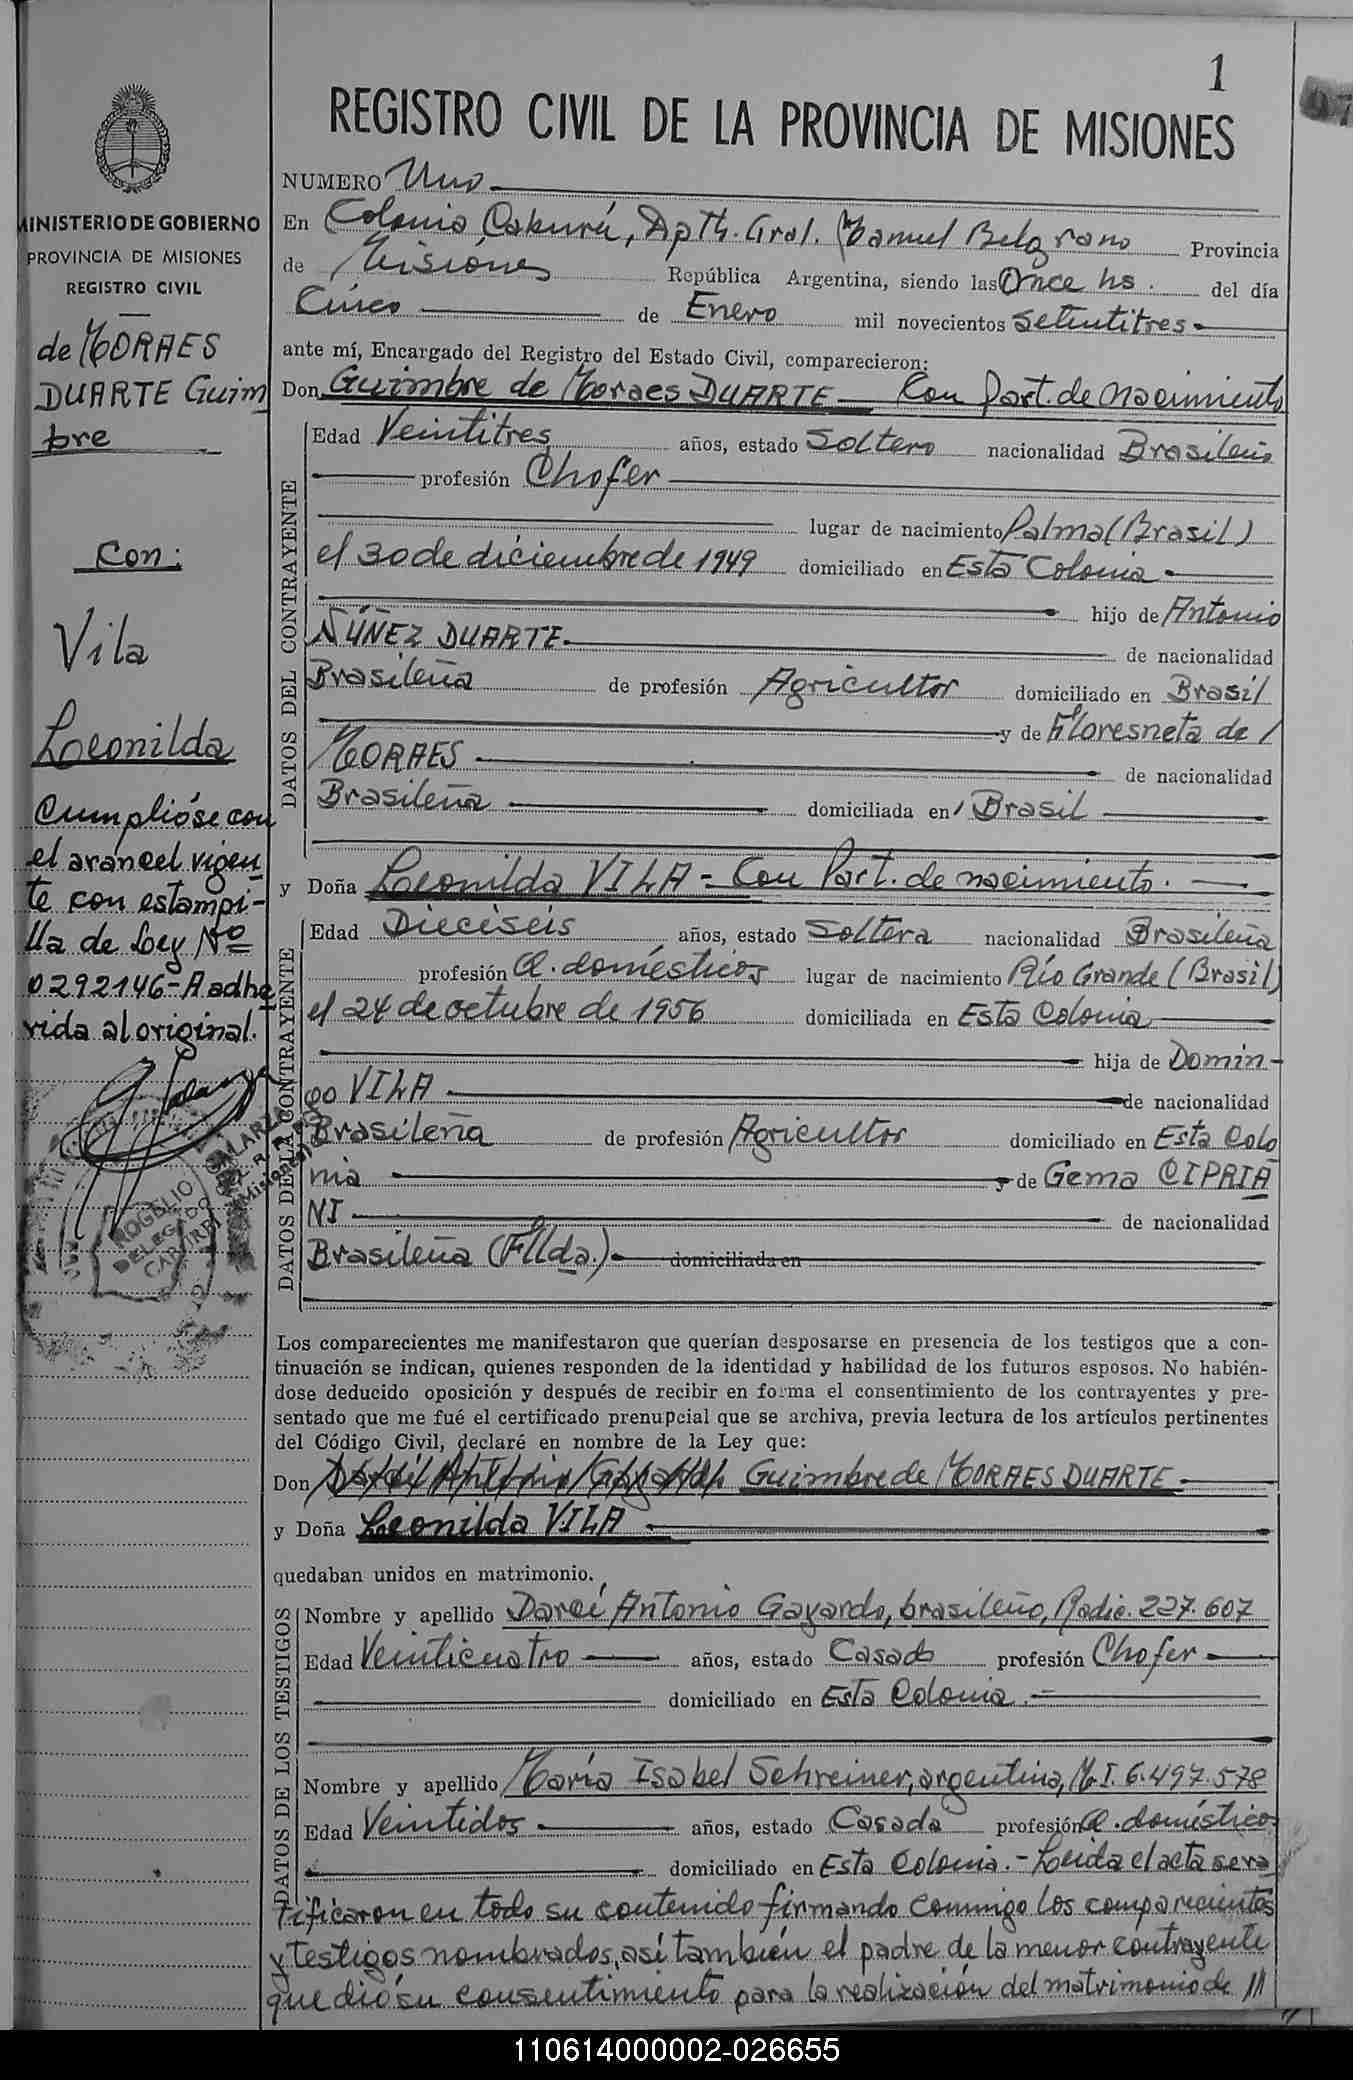 1
REGISTRO CIVIL DE LA PROVINCIA DE MISIONES
MINISTERIO DE GOBIERNO
PROVINCIA DE MISIONES
REGISTRO CIVIL
de MORAES
DUARTE Guim
bre
Con:
Vila
Leonilda
Cumplióse con
el arancel vigen
te con estampi-
lla de Ley Nº
0292146-A adhe
rida al original.
ROGELIO GALARZA
DELEGADO
NUMERO Uno
En Colonia Caburú, Dpth. Gral. Manuel Belgrano Provincia
de Misiones República Argentina, siendo las Once hs. del día
Cinco de Enero mil novecientos setentitres
ante mí, Encargado del Registro del Estado Civil, comparecieron:
Don Guimbre de Moraes DUARTE Con Part. de nacimiento
DATOS DEL CONTRAYENTE
Edad Veintitres años, estado Soltero nacionalidad Brasileño
profesión Chofer
lugar de nacimiento Palma (Brasil)
el 30 de diciembre de 1949 domiciliado en Esta Colonia
hijo de Antonio
NÚÑEZ DUARTE. de nacionalidad
Brasileña de profesión Agricultor domiciliado en Brasil
y de Floresneta de /
MORAES de nacionalidad
Brasileña domiciliada en / Brasil
y Doña Leonilda VILA = Con Part. de nacimiento.
DATOS DE LA CONTRAYENTE
Edad Dieciséis años, estado Soltera nacionalidad Brasileña
profesión Q. domésticos lugar de nacimiento Río Grande (Brasil)
el 24 de octubre de 1956 domiciliada en Esta Colonia
hija de Domin-
go VILA de nacionalidad
Brasileña de profesión Agricultor domiciliado en Esta Colo
nia y de Gema CIPRIA
NI de nacionalidad
Brasileña (Fllda.) domiciliada en
Los comparecientes me manifestaron que querían desposarse en presencia de los testigos que a con-
tinuación se indican, quienes responden de la identidad y habilidad de los futuros esposos. No habién-
dose deducido oposición y después de recibir en forma el consentimiento de los contrayentes y pre-
sentado que me fué el certificado prenupcial que se archiva, previa lectura de los artículos pertinentes
del Código Civil, declaré en nombre de la Ley que:
Don Guimbre de MORAES DUARTE
y Doña Leonilda VILA
quedaban unidos en matrimonio.
DATOS DE LOS TESTIGOS
Nombre y apellido Darci Antonio Gayardo, brasileño, Radic. 227.607
Edad Veinticuatro años, estado Casado profesión Chofer
domiciliado en Esta Colonia.
Nombre y apellido María Isabel Schreiner, argentina, M I. 6.497.578
Edad Veintidos años, estado Casada profesión Q. doméstico
domiciliado en Esta Colonia. - Leida el acta se ra
tificaron en todo su contenido firmando conmigo los comparecientes
y testigos nombrados, así también el padre de la menor contrayente
que dió su consentimiento para la realización del matrimonio de ///
110614000002-026655